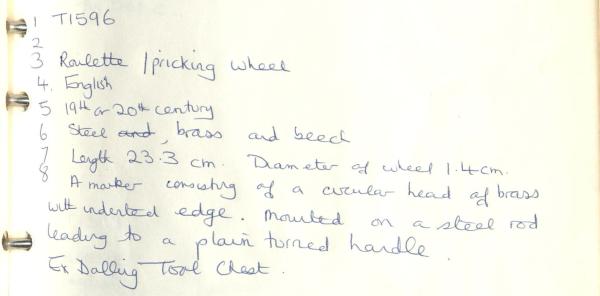 1 T1596
2
3 Roulette / pricking wheel
4. English
5 19th or 20th century
6 Steel and, brass and beech
7 Length 23.3 cm. Diameter of wheel 1.4cm.
8 A marker consisting of a circular head of brass
with indented edge. Mounted on a steel rod
leading to a plain turned handle.
Ex Dalling Tool Chest.